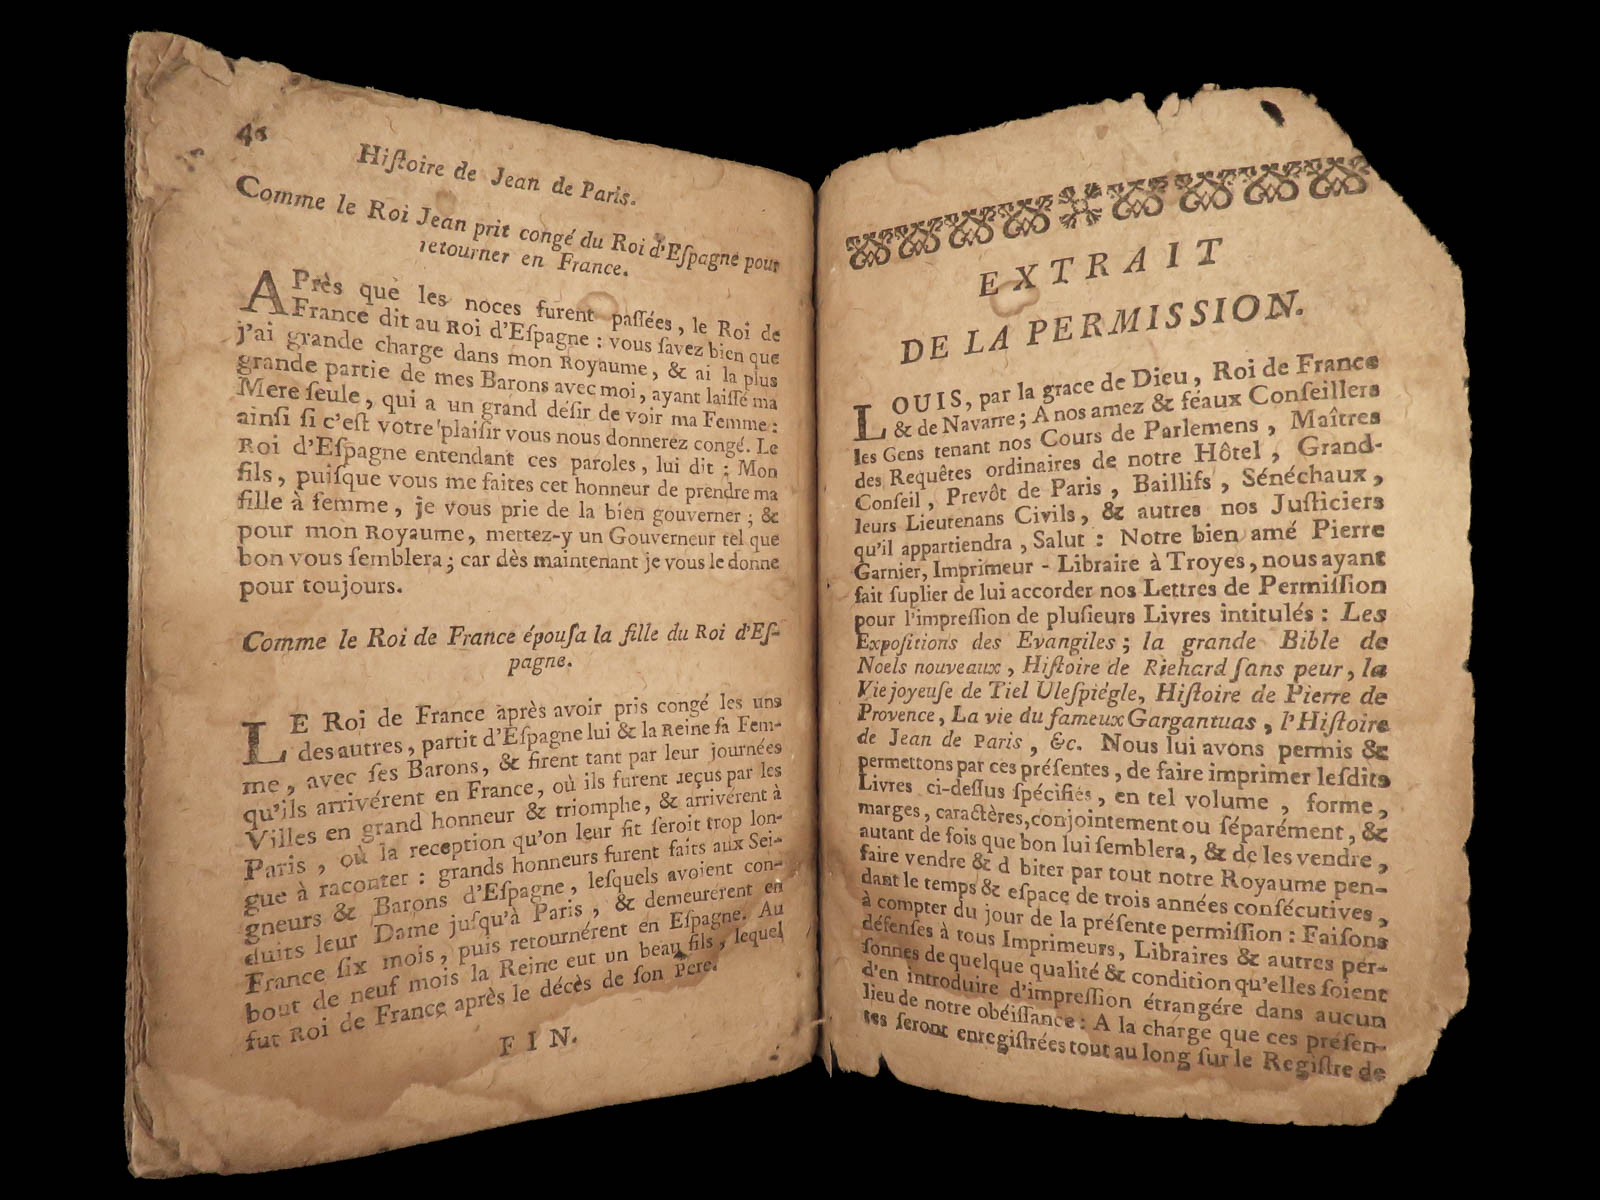 Hiſtoire de Jean de Paris.
Comme le Roi Jean prit congé du Roi d'Eſpagne pour
retourner en France.
APrès que les noces furent paſſées, le Roi de
France dit au Roi d'Eſpagne : vous ſavez bien que
j'ai grande charge dans mon Royaume, & ai la plus
grande partie de mes Barons avec moi, ayant laiſſé ma
Mere ſeule, qui a un grand déſir de voir ma Femme :
ainſi ſi c'eſt votre plaiſir vous nous donnerez congé. Le
Roi d'Eſpagne entendant ces paroles, lui dit : Mon
fils, puiſque vous me faites cet honneur de prendre ma
fille à femme, je vous prie de la bien gouverner ; &
pour mon Royaume, mettez-y un Gouverneur tel que
bon vous ſemblera ; car dès maintenant je vous le donne
pour toujours.
Comme le Roi de France épouſa la fille du Roi d'Eſ-
pagne.
LE Roi de France après avoir pris congé les uns
des autres, partit d'Eſpagne lui & la Reine ſa Fem-
me, avec ſes Barons, & firent tant par leur journées
qu'ils arrivérent en France, où ils furent reçus par les
Villes en grand honneur & triomphe, & arrivérent à
Paris, où la reception qu'on leur fit ſeroit trop lon-
gue à raconter : grands honneurs furent faits aux Sei-
gneurs & Barons d'Eſpagne, leſquels avoient con-
duits leur Dame juſqu'à Paris, & demeurérent en
France ſix mois, puis retournérent en Eſpagne. Au
bout de neuf mois la Reine eut un beau fils, lequel
fut Roi de France après le décès de ſon Pere.
FIN.
EXTRAIT
DE LA PERMISSION.
LOUIS, par la grace de Dieu, Roi de France
& de Navarre ; A nos amez & féaux Conſeillers
les Gens tenant nos Cours de Parlemens, Maîtres
des Requêtes ordinaires de notre Hôtel, Grand-
Conſeil, Prevôt de Paris, Baillifs, Sénéchaux,
leurs Lieutenans Civils, & autres nos Juſticiers
qu'il appartiendra, Salut : Notre bien amé Pierre
Garnier, Imprimeur - Libraire à Troyes, nous ayant
fait ſuplier de lui accorder nos Lettres de Permiſſion
pour l'impreſſion de pluſieurs Livres intitulés : Les
Expoſitions des Evangiles ; la grande Bible de
Noels nouveaux, Hiſtoire de Riehard ſans peur, la
Vie joyeuſe de Tiel Uleſpiégle, Hiſtoire de Pierre de
Provence, La vie du fameux Gargantuas, l'Hiſtoire
de Jean de Paris, &c. Nous lui avons permis &
permettons par ces préſentes, de faire imprimer leſdits
Livres ci-deſſus ſpécifiés, en tel volume, forme,
marges, caractères, conjointement ou ſéparément, &
autant de fois que bon lui ſemblera, & de les vendre,
faire vendre & d biter par tout notre Royaume pen-
dant le temps & eſpace de trois années conſécutives,
à compter du jour de la préſente permiſſion : Faiſons
défenſes à tous Imprimeurs, Libraires & autres per-
ſonnes de quelque qualité & condition qu'elles ſoient
d'en introduire d'impreſſion étrangére dans aucun
lieu de notre obéiſſance : A la charge que ces préſen-
tes ſeront enregiſtrées tout au long ſur le Regiſtre de